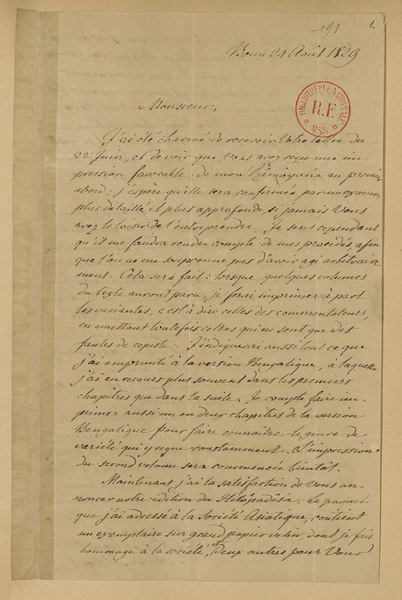 191
1.
Bonn 21 Août 1829
BIBLIOTHÈQUE NATIONALE
R.F.
MSS
Monsieur,
J'ai été charmé de recevoir Votre lettre du
22 Juin, et de voir que Vous avez reçu une im-
pression favorable de mon Râmâyana au premier
abord: j'espère qu'elle sera confirmée par un examen
plus détaillé et plus approfondi, si jamais Vous
avez le loisir de l'entreprendre. Je sens cependant
qu'il me faudra rendre compte de mes procédés afin
que l'on ne me soupçonne pas d'avoir agi arbitraire-
ment. Cela sera fait: lorsque quelques volumes
du texte auront paru, je ferai imprimer à part
les variantes, c'est à dire celles des commentateurs,
en omettant toutefois celles qui ne sont que des
fautes de copiste. J'indiquerai aussi tout ce que
j'ai emprunté à la version Bengalique, à laquelle
j'ai eu recours plus souvent dans les premiers
chapitres que dans la suite. Je compte faire im-
primer aussi un ou deux chapitres de la version
Bengalique pour faire connaître le genre de
variété qui y règne constamment. L'impression
du second volume sera commencée bientôt.
Maintenant j'ai la satisfaction de Vous an-
noncer notre édition du Hitôpadêsa. Le paquet
que j'ai adressé à la Société Asiatique, contient
un exemplaire sur grand papier vélin, dont je fais
hommage à la société, deux autres pour Vous